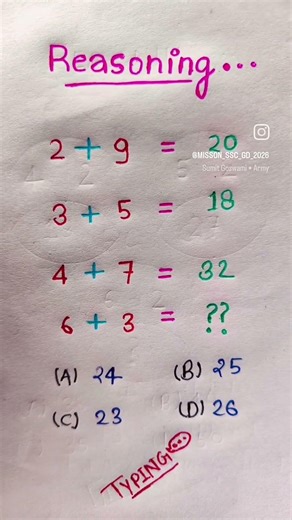 Reasoning...
2 + 9 = 20
@MISSON_SSC_GD_2026
Sumit Goswami • Army
3 + 5 = 18
4 + 7 = 32
6 + 3 = ??
(A) 24 (B) 25
(C) 23 (D) 26
TYPING...